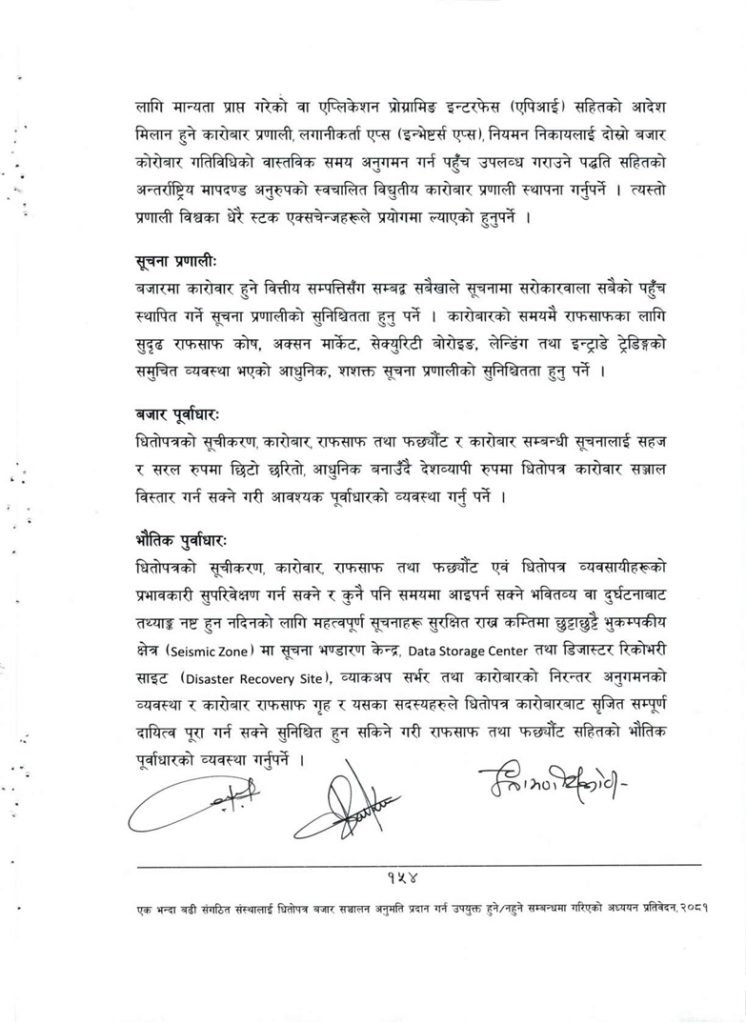 लागि मान्यता प्राप्त गरेको वा एप्लिकेशन प्रोग्रामिङ इन्टरफेस (एपिआई) सहितको आदेश
मिलान हुने कारोबार प्रणाली, लगानीकर्ता एप्स (इन्भेष्टर्स एप्स), नियमन निकायलाई दोस्रो बजार
कोरोबार गतिविधिको वास्तविक समय अनुगमन गर्न पहुँच उपलव्ध गराउने पद्धति सहितको
अन्तर्राष्ट्रिय मापदण्ड अनुरुपको स्वचालित विद्युतीय कारोबार प्रणाली स्थापना गर्नुपर्ने । त्यस्तो
प्रणाली विश्वका धेरै स्टक एक्सचेन्जहरूले प्रयोगमा ल्याएको हुनुपर्ने ।
सूचना प्रणालीः
बजारमा कारोवार हुने वित्तीय सम्पत्तिसँग सम्बद्ध सबैखाले सूचनामा सरोकारवाला सबैको पहुँच
स्थापित गर्ने सूचना प्रणालीको सुनिश्चितता हुनु पर्ने । कारोबारको समयमै राफसाफका लागि
सुदृढ राफसाफ कोष, अक्सन मार्केट, सेक्युरिटी बोरोइङ, लेन्डिंग तथा इन्ट्राडे ट्रेडिङ्गको
समुचित व्यवस्था भएको आधुनिक, शशक्त सूचना प्रणालीको सुनिश्चितता हुनु पर्ने ।
बजार पूर्वाधारः
धितोपत्रको सूचीकरण, कारोबार, राफसाफ तथा फर्छ्यौट र कारोबार सम्बन्धी सूचनालाई सहज
र सरल रुपमा छिटो छरितो, आधुनिक बनाउँदै देशव्यापी रुपमा धितोपत्र कारोवार सञ्जाल
विस्तार गर्न सक्ने गरी आवश्यक पूर्वाधारको व्यवस्था गर्नु पर्ने ।
भौतिक पुर्वाधारः
धितोपत्रको सूचीकरण, कारोबार, राफसाफ तथा फर्छ्यौट एवं धितोपत्र व्यवसायीहरूको
प्रभावकारी सुपरिवेक्षण गर्न सक्ने र कुनै पनि समयमा आइपर्न सक्ने भवितव्य वा दुर्घटनाबाट
तथ्याङ्क नष्ट हुन नदिनको लागि महत्वपूर्ण सूचनाहरू सुरक्षित राख्न कम्तिमा छुट्टाछुट्टै भुकम्पकीय
क्षेत्र (Seismic Zone) मा सूचना भण्डारण केन्द्र, Data Storage Center तथा डिजास्टर रिकोभरी
साइट (Disaster Recovery Site), व्याकअप सर्भर तथा कारोबारको निरन्तर अनुगमनको
व्यवस्था र कारोबार राफसाफ गृह र यसका सदस्यहरुले धितोपत्र कारोबारबाट सृजित सम्पूर्ण
दायित्व पूरा गर्न सक्ने सुनिश्चित हुन सकिने गरी राफसाफ तथा फर्छ्यौट सहितको भौतिक
पूर्वाधारको व्यवस्था गर्नुपर्ने ।
१५४
एक भन्दा बढी संगठित संस्थालाई धितोपत्र बजार सञ्चालन अनुमति प्रदान गर्न उपयुक्त हुने/नहुने सम्बन्धमा गरिएको अध्ययन प्रतिवेदन, २०८१